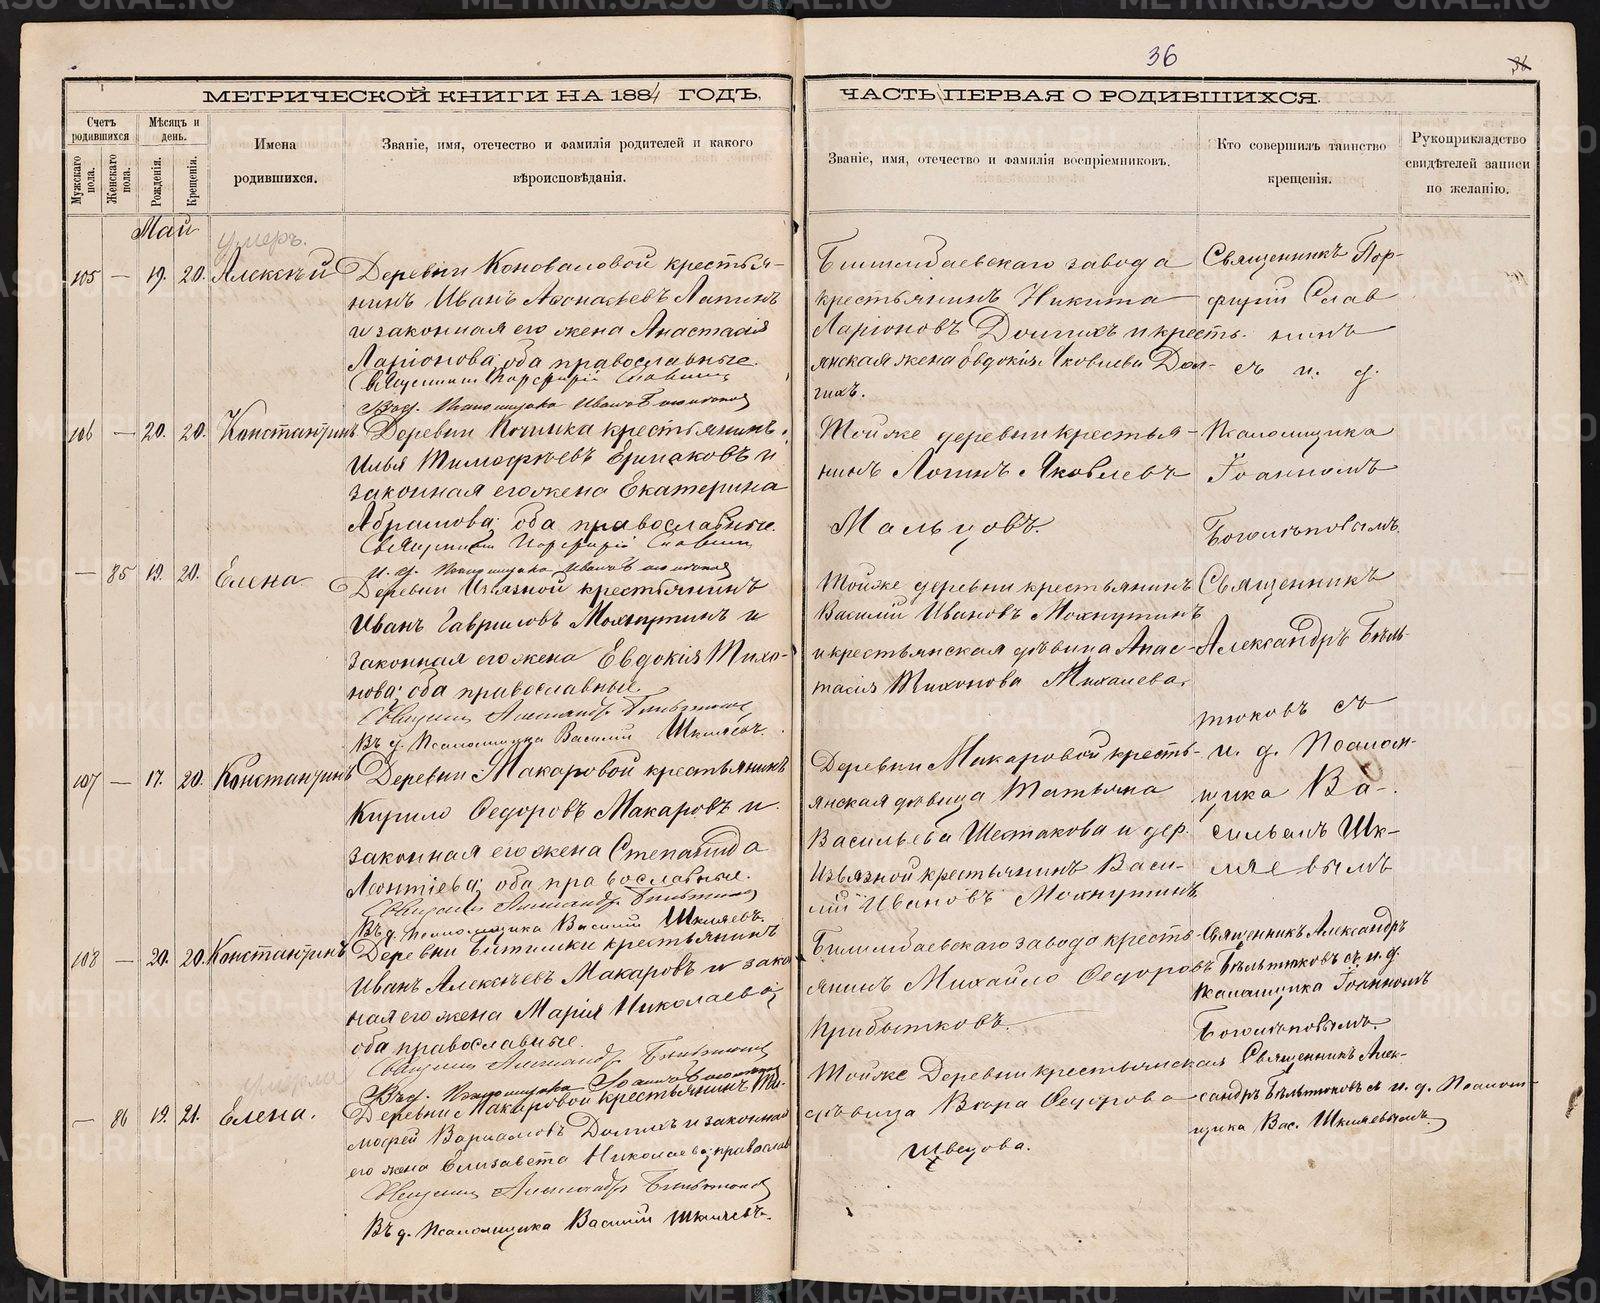 36
МЕТРИЧЕСКОЙ КНИГИ НА 1884 ГОДЪ,
ЧАСТЬ ПЕРВАЯ О РОДИВШИХСЯ.
Счетъ родившихся
Мужскаго пола.
Женскаго пола.
Мѣсяцъ и день.
Рожденія.
Крещенія.
Имена родившихся.
Званіе, имя, отечество и фамилія родителей и какого вѣроисповѣданія.
Званіе, имя, отечество и фамилія воспріемниковъ.
Кто совершилъ таинство крещенія.
Рукоприкладство свидѣтелей записи по желанію.
Май
умеръ.
105 — 19. 20. Алексѣй
Деревни Коноваловой крестья-
нинъ Иванъ Аѳонасьевъ Лапинъ
и законная его жена Анастасія
Ларіонова; оба православные.
Священникъ Порфирій Славнинъ
Псаломщика Иванъ
Билимбаевскаго завода
крестьянинъ Никита
Ларіоновъ Долгихъ и кресть-
янская жена Евдокія Яковлева Дол-
гихъ.
Священникъ Пор-
фирій Слав
нинъ
съ и. д.
106 — 20. 20. Константинъ
Деревни крестьянинъ
Илья Тимофѣевъ Ермаковъ и
законная его жена Екатерина
Абрамова; оба православные.
Священникъ Порфирій Славнинъ
и. д. Псаломщика Иванъ
Той же деревни крестья-
нинъ Логинъ Яковлевъ
Мальцовъ.
Псаломщика
Іоанномъ
Боголѣповымъ.
— 85 19. 20. Елена
Деревни Извязной крестьянинъ
Иванъ Гавриловъ Мохнутинъ и
законная его жена Евдокія Тихо-
нова; оба православные.
Священникъ Александръ Бѣльтюковъ
Въ д. Псаломщика Василій Шкляевъ.
Той же деревни крестьянинъ
Василій Ивановъ Мохнутинъ
и крестьянская дѣвица Анас-
тасія Тихонова Михалева.
Священникъ
Александръ Бѣль-
тюковъ съ
и. д. Псалом-
щика Ва-
сильемъ Шк-
ляевымъ
107 — 17. 20. Константинъ
Деревни Макаровой крестьянинъ
Кирило Ѳедоровъ Макаровъ и
законная его жена Степанида
Леонтіева; оба православные.
Священникъ Александръ Бѣльтюковъ
Въ д. Псаломщика Василій Шкляевъ.
Деревни Макаровой кресть-
янская дѣвица Татьяна
Васильева Шестакова и дер.
Извязной крестьянинъ Васи-
лій Ивановъ Мохнутинъ
108 — 20. 20. Константинъ
Деревни Битимки крестьянинъ
Иванъ Алексѣевъ Макаровъ и зако
ная его жена Марія Николаева;
оба православные.
Священникъ Александръ Бѣльтюковъ
Въ д. Псаломщика Іоаннъ
Билимбаевскаго завода кресть-
янинъ Михайло Ѳедоровъ
Прибытковъ.
Священникъ Александръ
Бѣльтюковъ съ и. д.
Псаломщика Іоанномъ
Боголѣповымъ.
умерла
— 86 19. 21. Елена.
Деревни Макаровой крестьянинъ Ти-
мофей Варламовъ Долгихъ и законная
его жена Елизавета Николаева; православ
Священникъ Александръ Бѣльтюковъ
Въ д. Псаломщика Василій Шкляевъ.
Той же Деревни крестьянская
дѣвица Вѣра Ѳедорова
Швецова.
Священникъ Алек-
сандръ Бѣльтюковъ съ и. д. Псалом-
щика Вас. Шкляевымъ.
METRIKI.GASO-URAL.RU